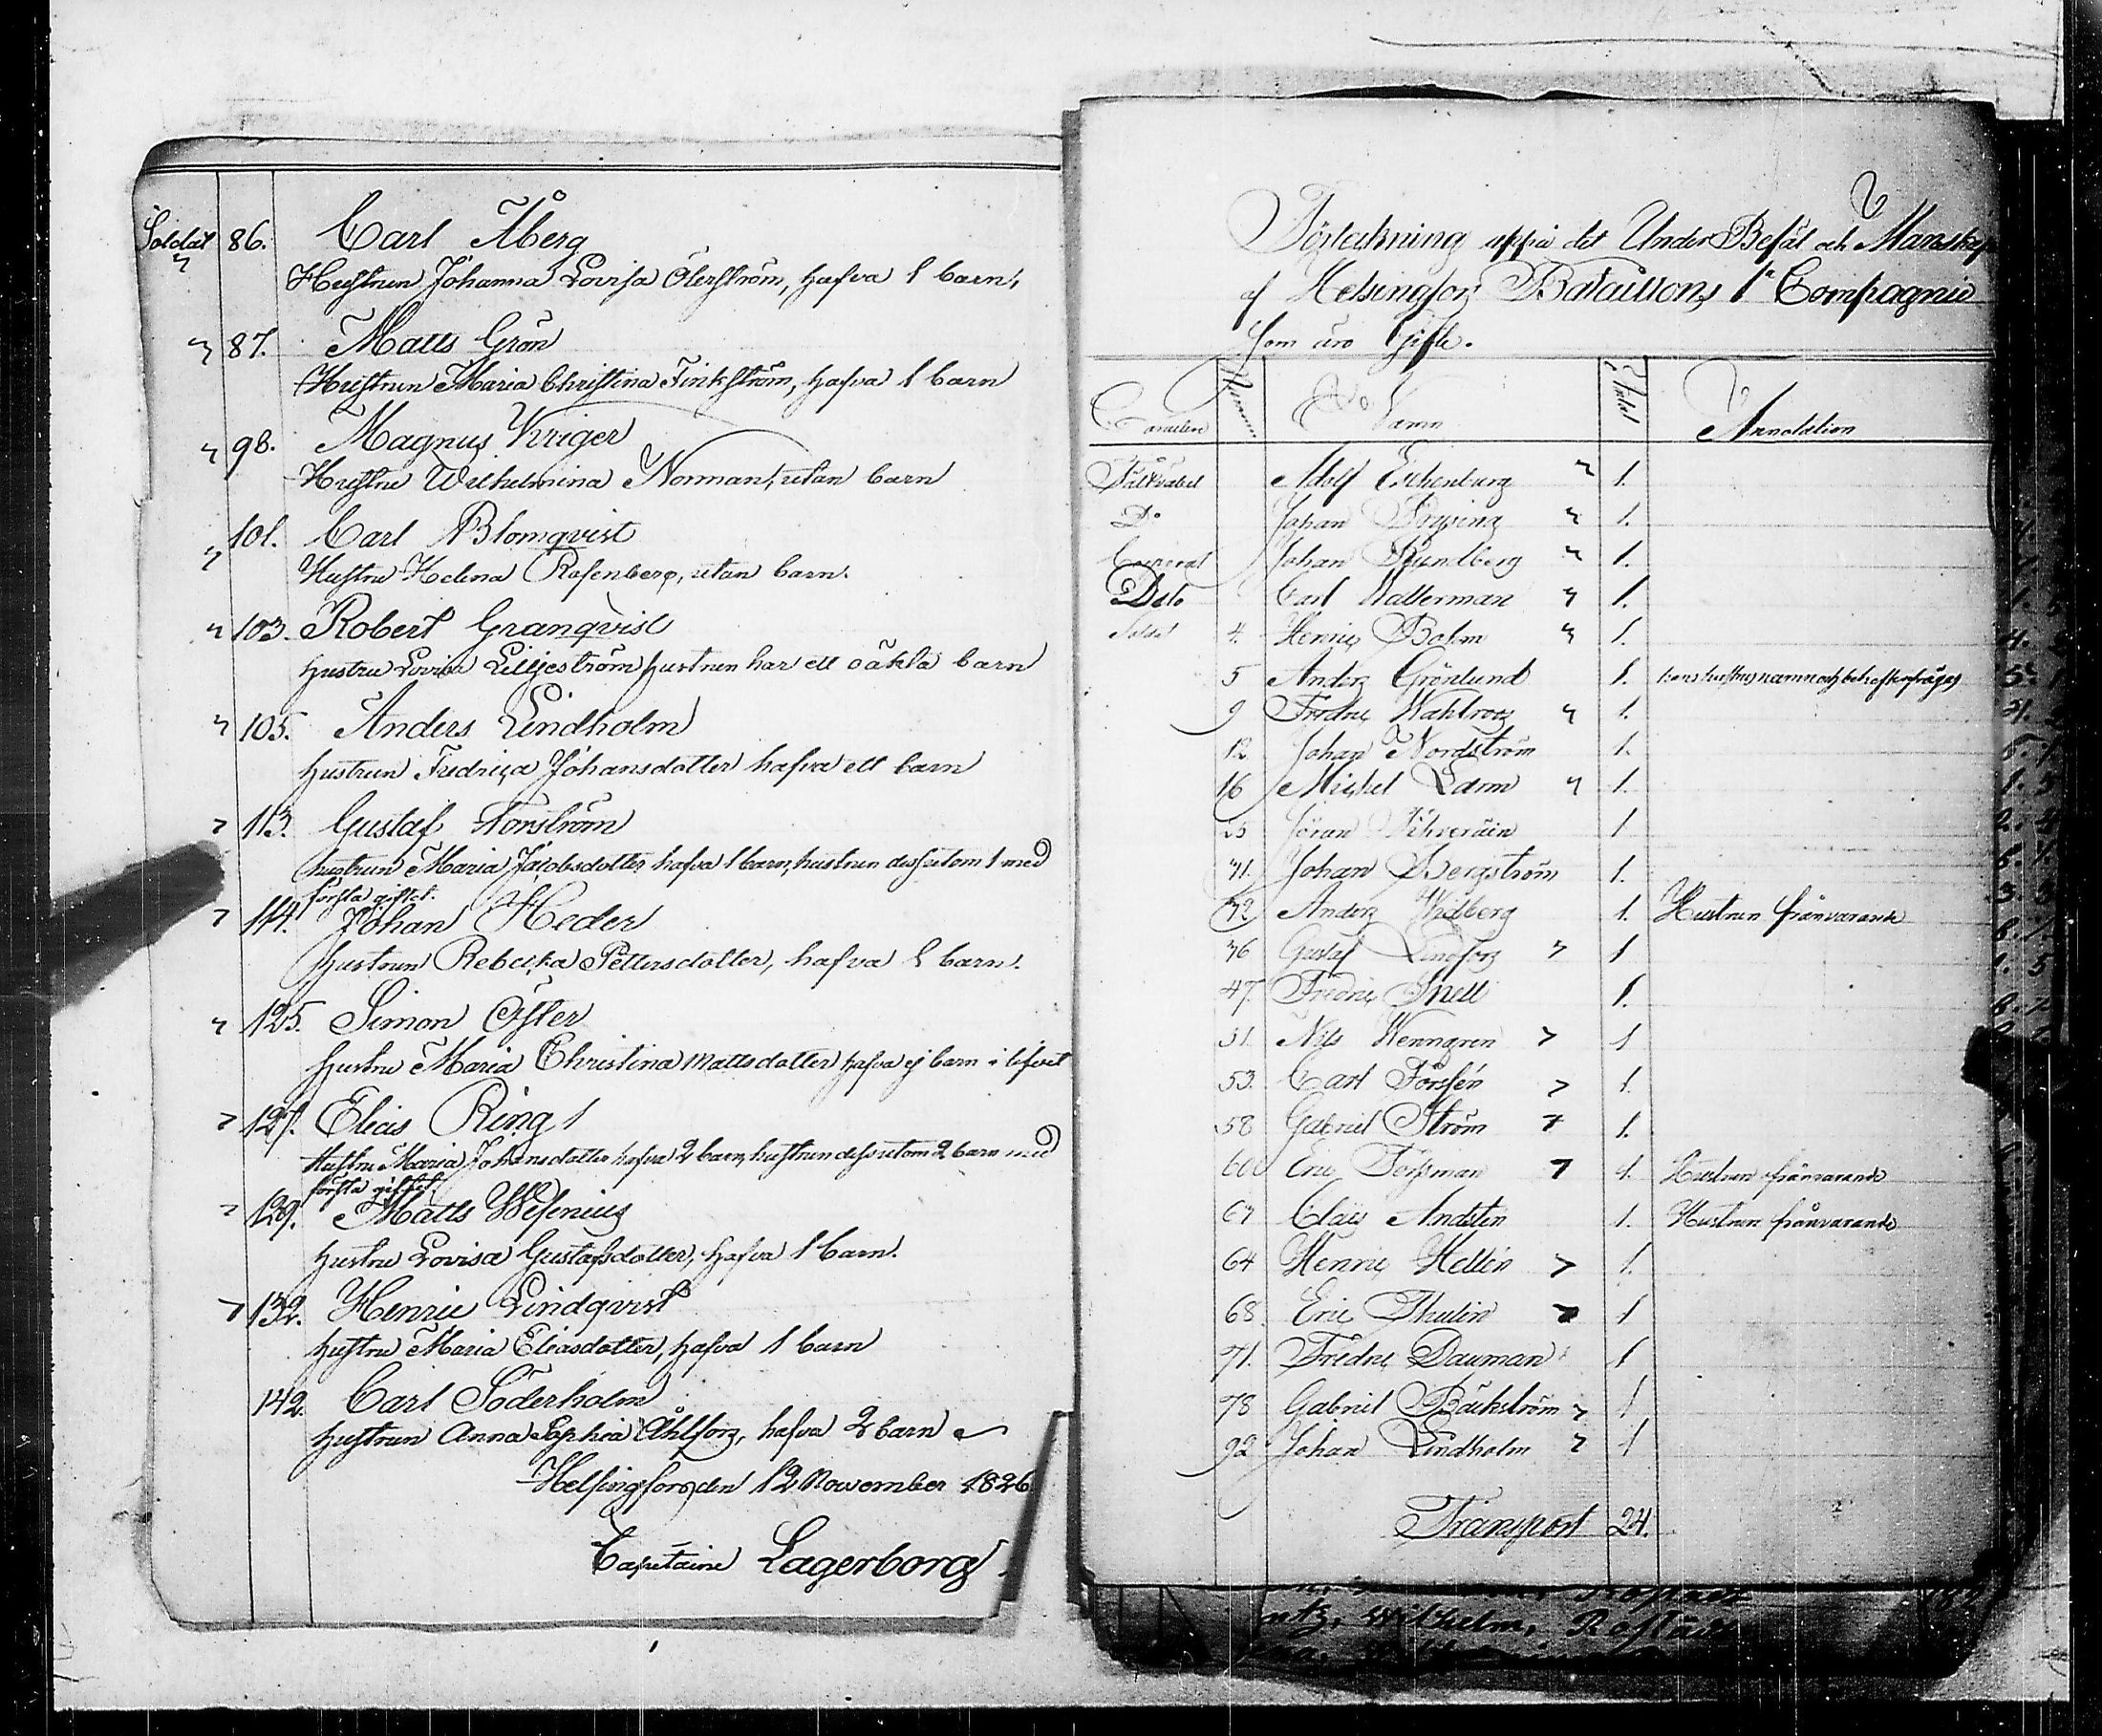 Soldat 86. Carl Åberg
Hustrun Johanna Lovisa Öterström, hafva 1 barn,
87. Matts Grön
Hustrun Maria Christina Finkström, hafva 1 barn
98. Magnus Kriger
Hustru Wilhelmina Norman, utan barn
101. Carl Blomqvist
Hustru Helena Rosenberg, utan barn.
103. Robert Granqvist
hustru Lovisa Lilljeström hustrun har ett oäkta barn
105. Anders Lindholm
hustrun Fredrica Johansdotter hafva ett barn
113. Gustaf Forström
hustrun Maria Jacobsdotter hafva 1 barn, hustrun dessutom 1 med
första giftet.
114. Johan Heder
hustrun Rebecka Pettersdotter, hafva 1 barn.
125. Simon Öster
hustru Maria Christina Mattsdotter hafva ej barn i lifvet
127. Elias Ring
Hustru Maria Johansdotter hafva 2 barn, hustrun dessutom 2 barn med
första giftet.
129. Matts Wesenius
hustru Lovisa Gustafsdotter, hafva 1 barn.
132. Henric Lindqvist
hustru Maria Eliasdotter, hafva 1 barn
142. Carl Söderholm
hustrun Anna Sophia Åhlfors, hafva 2 barn
Helsingfors den 12 November 1826
Capitaine Lagerborg
Förteckning uppå det Under Befäl och Manskap
af Helsingfors Bataillons 1a Compagnie
som äro Gifte.
Caractere Numer Namn Antal Annotation
Fältväbel Adolf Eschenburg 1.
Do Johan 1.
Corporal Johan Rundberg 1.
Dito Carl Walterman 1.
Soldat 4. Henric Bohm 1.
5 Anders Grönlund 1. hans hustrus namn och
9 Fredric Wahlroos 1.
12. Johan Nordström 1.
16 Michel Larm 1.
25 Jöran 1
31. Johan Bergström 1.
32 Anders Widberg 1. Hustrun frånvarande
36 Gustaf Lindfors 1
47. Fredric Snell 1.
51. Nils Wenngren 1
53. Carl Forsén 1.
58 Gabriel Ström 1.
60 Eric Forsman 1. Hustrun frånvarande
63 Claës Andsten 1. Hustrun frånvarande
64 Henric Hellén 1.
68. Eric Thulin 1
71. Fredric Dauman 1
78 Gabriel Bäckström 1
92 Johan Lindholm 1
Transport 24.
Wilhelm,